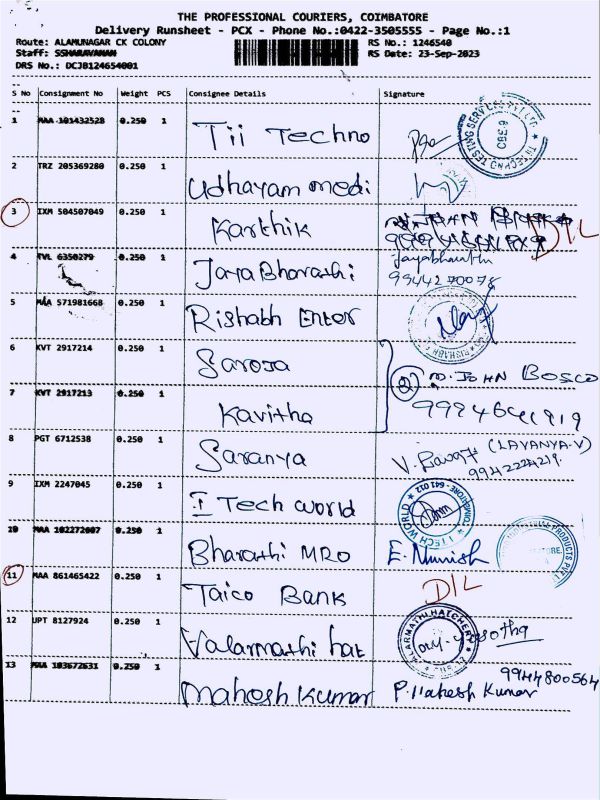 THE PROFESSIONAL COURIERS, COIMBATORE
Delivery Runsheet - PCX - Phone No.:0422-3505555 - Page No.:1
Route: ALAMUNAGAR CK COLONY RS No.: 1246540
Staff: RS Date: 23-Sep-2023
DRS No.: DCJB124654001
S No Consignment No Weight PCS Consignee Details Signature
1 MAA 101432528 0.250 1 Tii Techno
2 TRZ 205369280 0.250 1 Udhayam medi
3 IXM 504507049 0.250 1 Karthik D/L
4 TVL 6350279 0.250 1 JayaBharathi Jayabharathi
99442 70078
5 MAA 571981668 0.250 1 Rishabh Enter
6 KVT 2917214 0.250 1 Saroja
(2) JOHN BOSCO
7 KVT 2917213 0.250 1 Kavitha
8 PGT 6712538 0.250 1 Saranya (LAVANYA.V)
9 IXM 2247045 0.250 1 I Tech world
I TECH WORLD COIMBATORE - 641 012
10 MAA 102272607 0.250 1 Bharathi MRO
11 MAA 861465422 0.250 1 Taico Bank D/L
12 UPT 8127924 0.250 1 Valarmathi hat
13 MAA 103672631 0.250 1 Mahesh Kumar P. Mahesh Kumar
9944800564